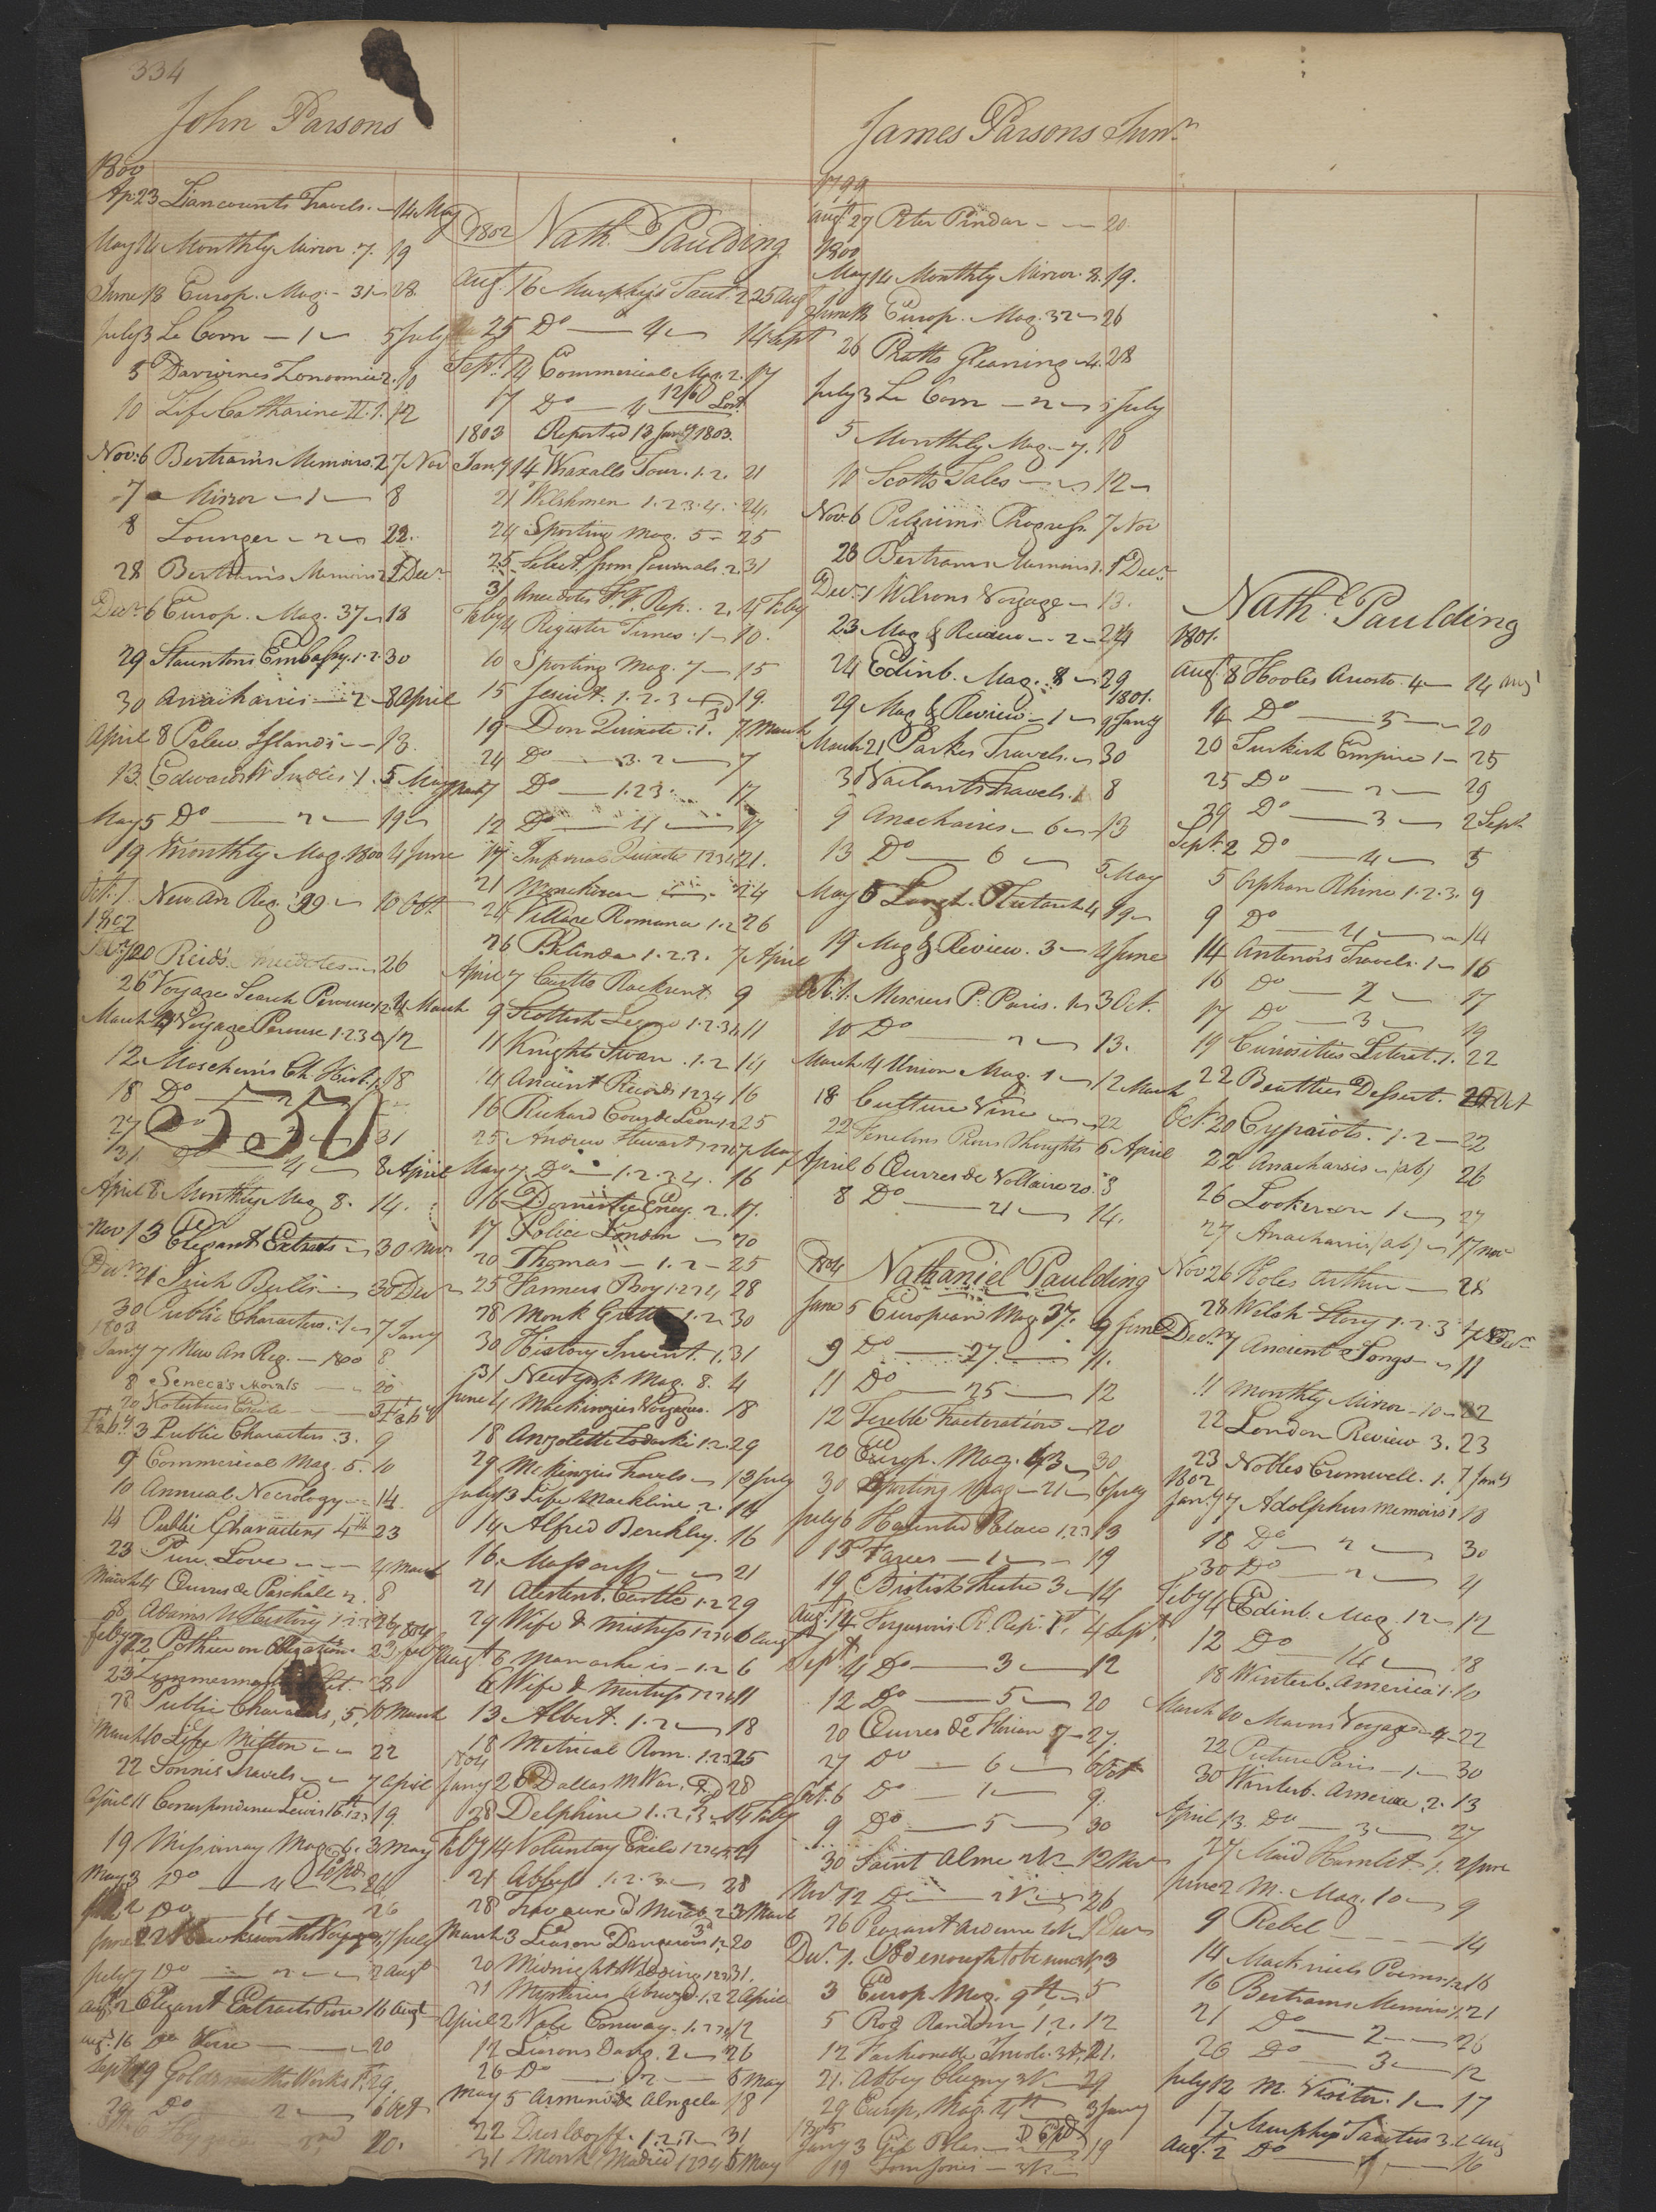 334
John Parsons
1800
Ap. 23 Liancourts Travels. 14 May
May 14 Monthly Mirror. 7. 19
June 18 Europ. Mag. 31 28
July 3 Le Corn 1 5 July
5 Darwines Zonomia 2. 10
10 Life Catharine II. 1. 12
Nov. 6 Bertram's Memoirs. 2 7 Nov
7 Mirror 1 8
8 Lounger 2 22.
28 Bertram's Memoirs 2 1 Decr
Decr 6 Europ. Mag. 37 18
29 Stauntons Embassy. 1.2. 30
30 Anacharsis 2 8 April
April 8 Pelew Islands 13.
13. Edwards W Indies 1. 5 May
May 5 Do 2 19
19 Monthly Mag. 1800 4 June
Oct. 1. New An Reg. 99 10 Oct.
1802
20 Reids 26
26 Voyage Search Perouse 1.2 4 March
March 4 Voyage Perouse 1.2.3 12
12 Moscheim's Ch. Hist. 1. 18
18 Do 2
550
27 Do 31
31 4 8 April
April 8 Monthly Mag 8. 14.
Nov 13 Elegant Extracts 30 Nov
Decr 21 Irish Bulls 30 Decr
30 Public Characters. 1 7 Jany
1803
Jany 7 New An Reg. 1800 8
8 Seneca's Morals 20
20 Kotzebues Exile 3 Feby
Feby 3 Public Characters. 3. 9
9 Commerical Mag. 5. 10
10 Annual Necrology 14
14 Public Characters 4th 23
23 Pure Love 4 March
March 4 Œuvres de Paschalle 2. 8
8 Adams N History 1804
Feby 22 Pothier on Obligations 23 Feby
23 Zimmerman 28
28 Public Characters, 5, 10 March
March 10 Life Milton 22
22 Sonnis Travels 7 April
April 11 Correspondence Lewis 16th 19
19 Missionary Mag. 6. 3 May
May 3 Do 4
2 Do 4 26
June 22 Hawkesworth Voyages, 7 July
July 7 Do 2 2 Augt
Augt 2 Elegant Extracts Prose 16 Augt
Augt 16 Do Verse 20
Sept 19 Goldsmiths Works 1. 29
29 Do 2 6 Oct
20.
1802 Nath. Paulding
Augt 16 Murphy's Tacit. 2 25 Augt
25 Do 4 14 Sept
Sept. 14 Commercial Mag. 2. 17
17 Do 4 12/6 Lost
1803 Reported 13 Jany 1803.
Jany 14 Wraxalls Tour. 1.2. 21
21 Welshmen 1.2.3.4. 24.
24 Sporting Mag. 5 25
25 Select. from Journals. 2. 31
31 Anecdotes F. Rep. 2. 4 Feby
Feby 4 Register Times. 1 10.
10 Sporting Mag. 7 15
15 Jesuit. 1.2.3 19.
19 Don Quixote. 1. 7 March
24 Do 3.2 7
March 7 Do 1.2.3 17
12 Do 4 17
17. Infernal Quixote 1234 21.
21 24
24 Village Romance 1.2 26
26 Belinda 1.2.3. 7 April
April 7 Castle Rackrent 9
9 Scottish Legend 1.2.3 11
11 Knights Swan. 1.2 14
14 Ancient Records 1234 16
16 Richard Cour de Leon 1.2 25
25 Andrew Stewart 7 May
May 7 Do 1.2.3.4. 16
16 Domestic Ency. 2. 17.
17 Police London 20
20 Thomas 1.2 25
25 Farmers Boy 1.2.3.4 28
28 Monk 1.2 30
30 History Invent. 1. 31
31 New York Mag. 8. 4
June 4 Mackinzies Voyages. 18
18 29
29 McKinzies Travels 13 July
July 13 Life Mackline 2. 14
14 Alfred Berkley. 16
16. 21
21 Castle 1.2 29
29 Wife & Mistress 1234 6 Augt
Augt 6 1.2 6
6 Wife & Mistress 1234 11
13 Albert. 1.2 18
18 Metrical Rom. 1.2.3 25
1804
Jany 26 Dallas M War. 2 28
28 Delphine 1.2.3 14 Feby
Feby 14 Voluntary Exile 12345 21
21 Abbess 1.2.3 28
28 2 3 March
March 3 Liason Dangerous 1.2 20
20 Midnight Wedding 1.2.3 31.
31 Mysteries 1.2 2 April
April 2 Nobe Conway. 1.2.3.4 12
12 Liasons Dang. 2 26
26 Do 2 5 May
May 5 Armenod Alngela 18
22 Dusldorff. 1.2.3 31
31 Monk Madrid 1234 5 May
James Parsons Junr
1799
Augt 27 Peter Pindar 20
1800
May 14 Monthly Mirror. 8. 19.
June 18 Europ. Mag. 32 26
26 Pratts Gleaning 4. 28
July 3 Le Corn 2 5 July
5 Monthly Mag. 7. 10
10 Scotts Tales 12
Nov. 6 Pilgrims Progress. 7 Nov
28 Bertrams Memoirs 1. 1 Decr
Decr 1 Wilsons Voyage 13.
23 Mag & Review 2 24
24 Edinb. Mag. 8 29
1801.
29 Mag & Review 1 9 Jany
March 21 Parkes Travels. 30
30 Vailants Travels. 1 8
9 Anacharsis 6 13
13 Do 6 5 May
May 5 Langh. Plutarch 4 19
19 Mag & Review. 3 4 June
Oct. 1. Mercurs P. Paris. 1 3 Oct.
10 Do 2 13.
March 4 Union Mag. 1 12 March
18 Culture Vine 22
22 Fenelons Pious Thoughts 6 April
April 6 Œuvres de Voltaire 20. 8
8 Do 21 14.
1804 Nathaniel Paulding
June 5 European Mag 37. 9 June
9 Do 27 11.
11 Do 25 12
12 Terrible Tractoration 20
20 Europ. Mag. 43 30
30 Sporting Mag 21 6 July
July 6 Haunted Palace 1.2.3 13
13 Farces 1 19
19 British Theatre 3 14
Augt 14 Fergusons R. Rep. 1st, 4 Sept
Sept 4 Do 3 12
12 Do 5 20
20 Œuvres de Florian 7 27.
27 Do 6 6 Oct
Oct. 6 Do 1 9
9 Do 5 30
30 Saint Alme 2V 12 Nov
Nov 12 Do 2V 26
26 Peasant Ardenne 1 Decr
Decr 1. Old enough to be 3
3 Europ Mag. 9th 5
5 Rod Random 1.2. 12
12 Fashionable 21.
21. Abbey Clugny 3V 29
29 Europ. Mag. 4th 3 Jany
1805
Jany 3 Gil Blas 19
19 Tom Jones 3V
Nathl Paulding
1801.
Augt 8 Hooles Ariosto. 4 14 Augt
14 Do 5 20
20 Turkish Empire 1 25
25 Do 2 29
29 Do 3 2 Sept
Sept. 2 Do 4 5
5 Orphan Rhine 1.2.3. 9
9 Do 4 14
14 Antenors Travels. 1 16
16 Do 2 17
17 Do 3 19
19 Curiosities Literat. 1. 22
22 Beatties Dissert. 20 Oct
Oct. 20 Cypriots. 1.2 22
22 Anacharsis (ab) 26
26 Looker on 1 27
27 Anacharsis (ab) 17 Nov
Nov 26 Holes Arthur 28
28 Welsh Story 1.2.3 7 Decr
Decr 7 Ancient Songs 11
11 Monthly Mirror 10 22
22 London Review 3. 23
23 Nobles Cromwell. 1. 7 Jany
1802
Jany 7 Adolphus Memoirs 1 18
18 Do 2 30
30 Do 2 4
Feby 4 Edinb. Mag. 12 12
12 Do 14 18
18 Winterb. America 1. 10
March 10 Mavors Voyages 4 22
22 Picture Paris 1 30
30 Winterb. America, 2. 13
April 13 Do 3 27
27 Maid Hamlet 1. 2 June
June 2 M. Mag. 10 9
9 Rebel 14
14 Mackniels Poems 1.2 16
16 Bertrams Memoirs 1. 21
21 Do 2 26
26 Do 3 12
July 12 M. Visitor. 1 17
17 Murphys Tacitus 3. 2 Augt
Augt. 2 Do 1 16